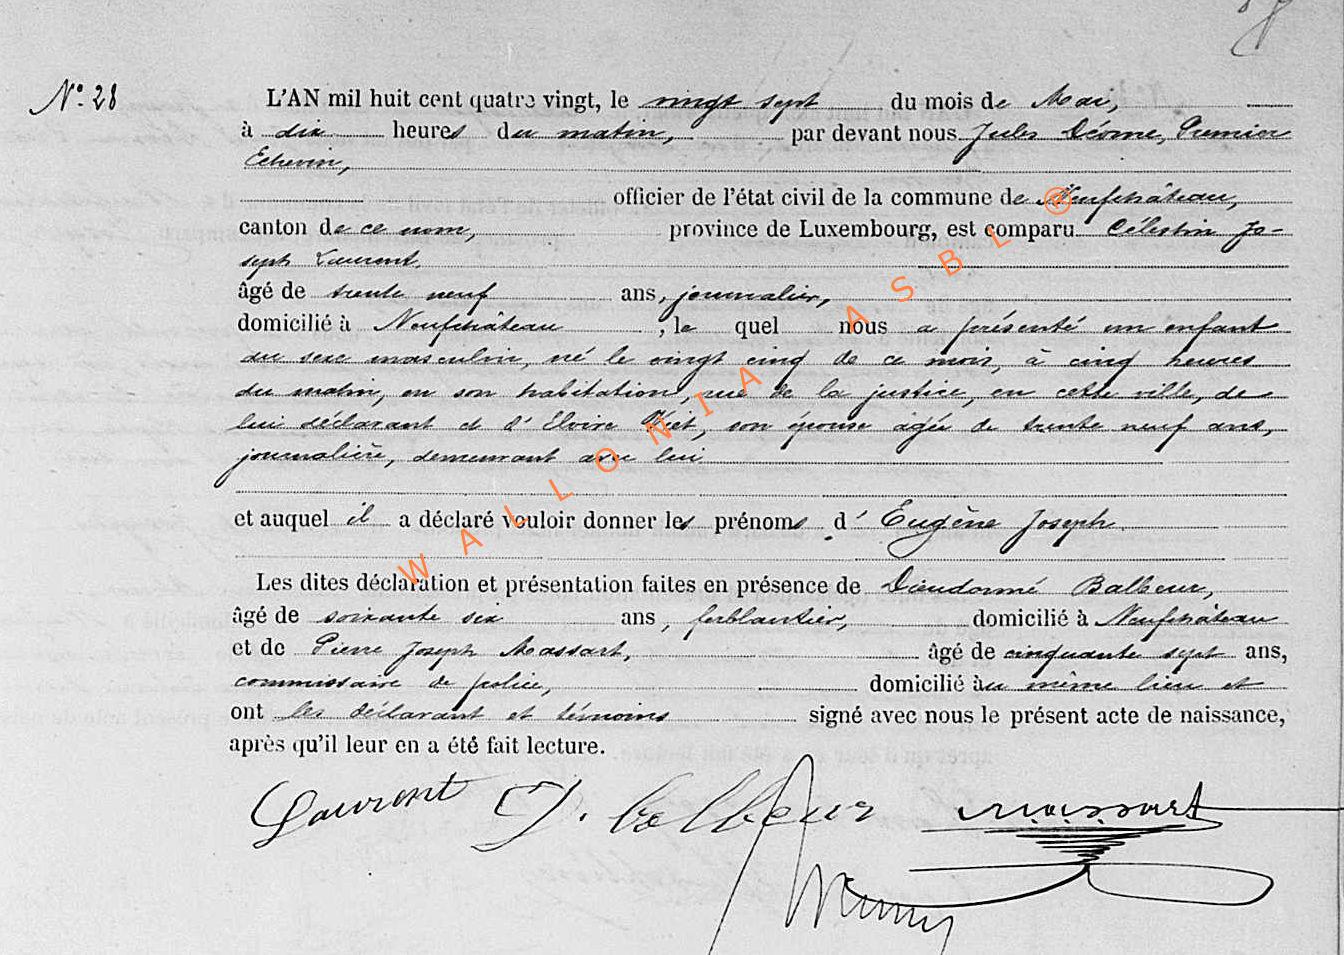 N° 28
L'AN mil huit cent quatre vingt, le vingt sept du mois de Mai,
à dix heures du matin, par devant nous Jules Déome, Premier
Echevin,
officier de l'état civil de la commune de Neufchâteau,
canton de ce nom, province de Luxembourg, est comparu Célestin Jo-
seph Laurent,
âgé de trente neuf ans, journalier,
domicilié à Neufchâteau, le quel nous a présenté un enfant
du sexe masculin, né le vingt cinq de ce mois, à cinq heures
du matin, en son habitation, rue de la justice, en cette ville, de
lui déclarant et d'Elvire son épouse âgée de trente neuf ans,
journalière, demeurant avec lui
et auquel il a déclaré vouloir donner les prénoms d'Eugène Joseph
Les dites déclaration et présentation faites en présence de Dieudonné Balbeur,
âgé de soixante six ans, ferblantier, domicilié à Neufchâteau
et de Pierre Joseph Massart, âgé de cinquante sept ans,
commissaire de police, domicilié au même lieu et
ont les déclarant et témoins signé avec nous le présent acte de naissance,
après qu'il leur en a été fait lecture.
Laurent D. Balbeur Massart
WALLONIA ASBL ®